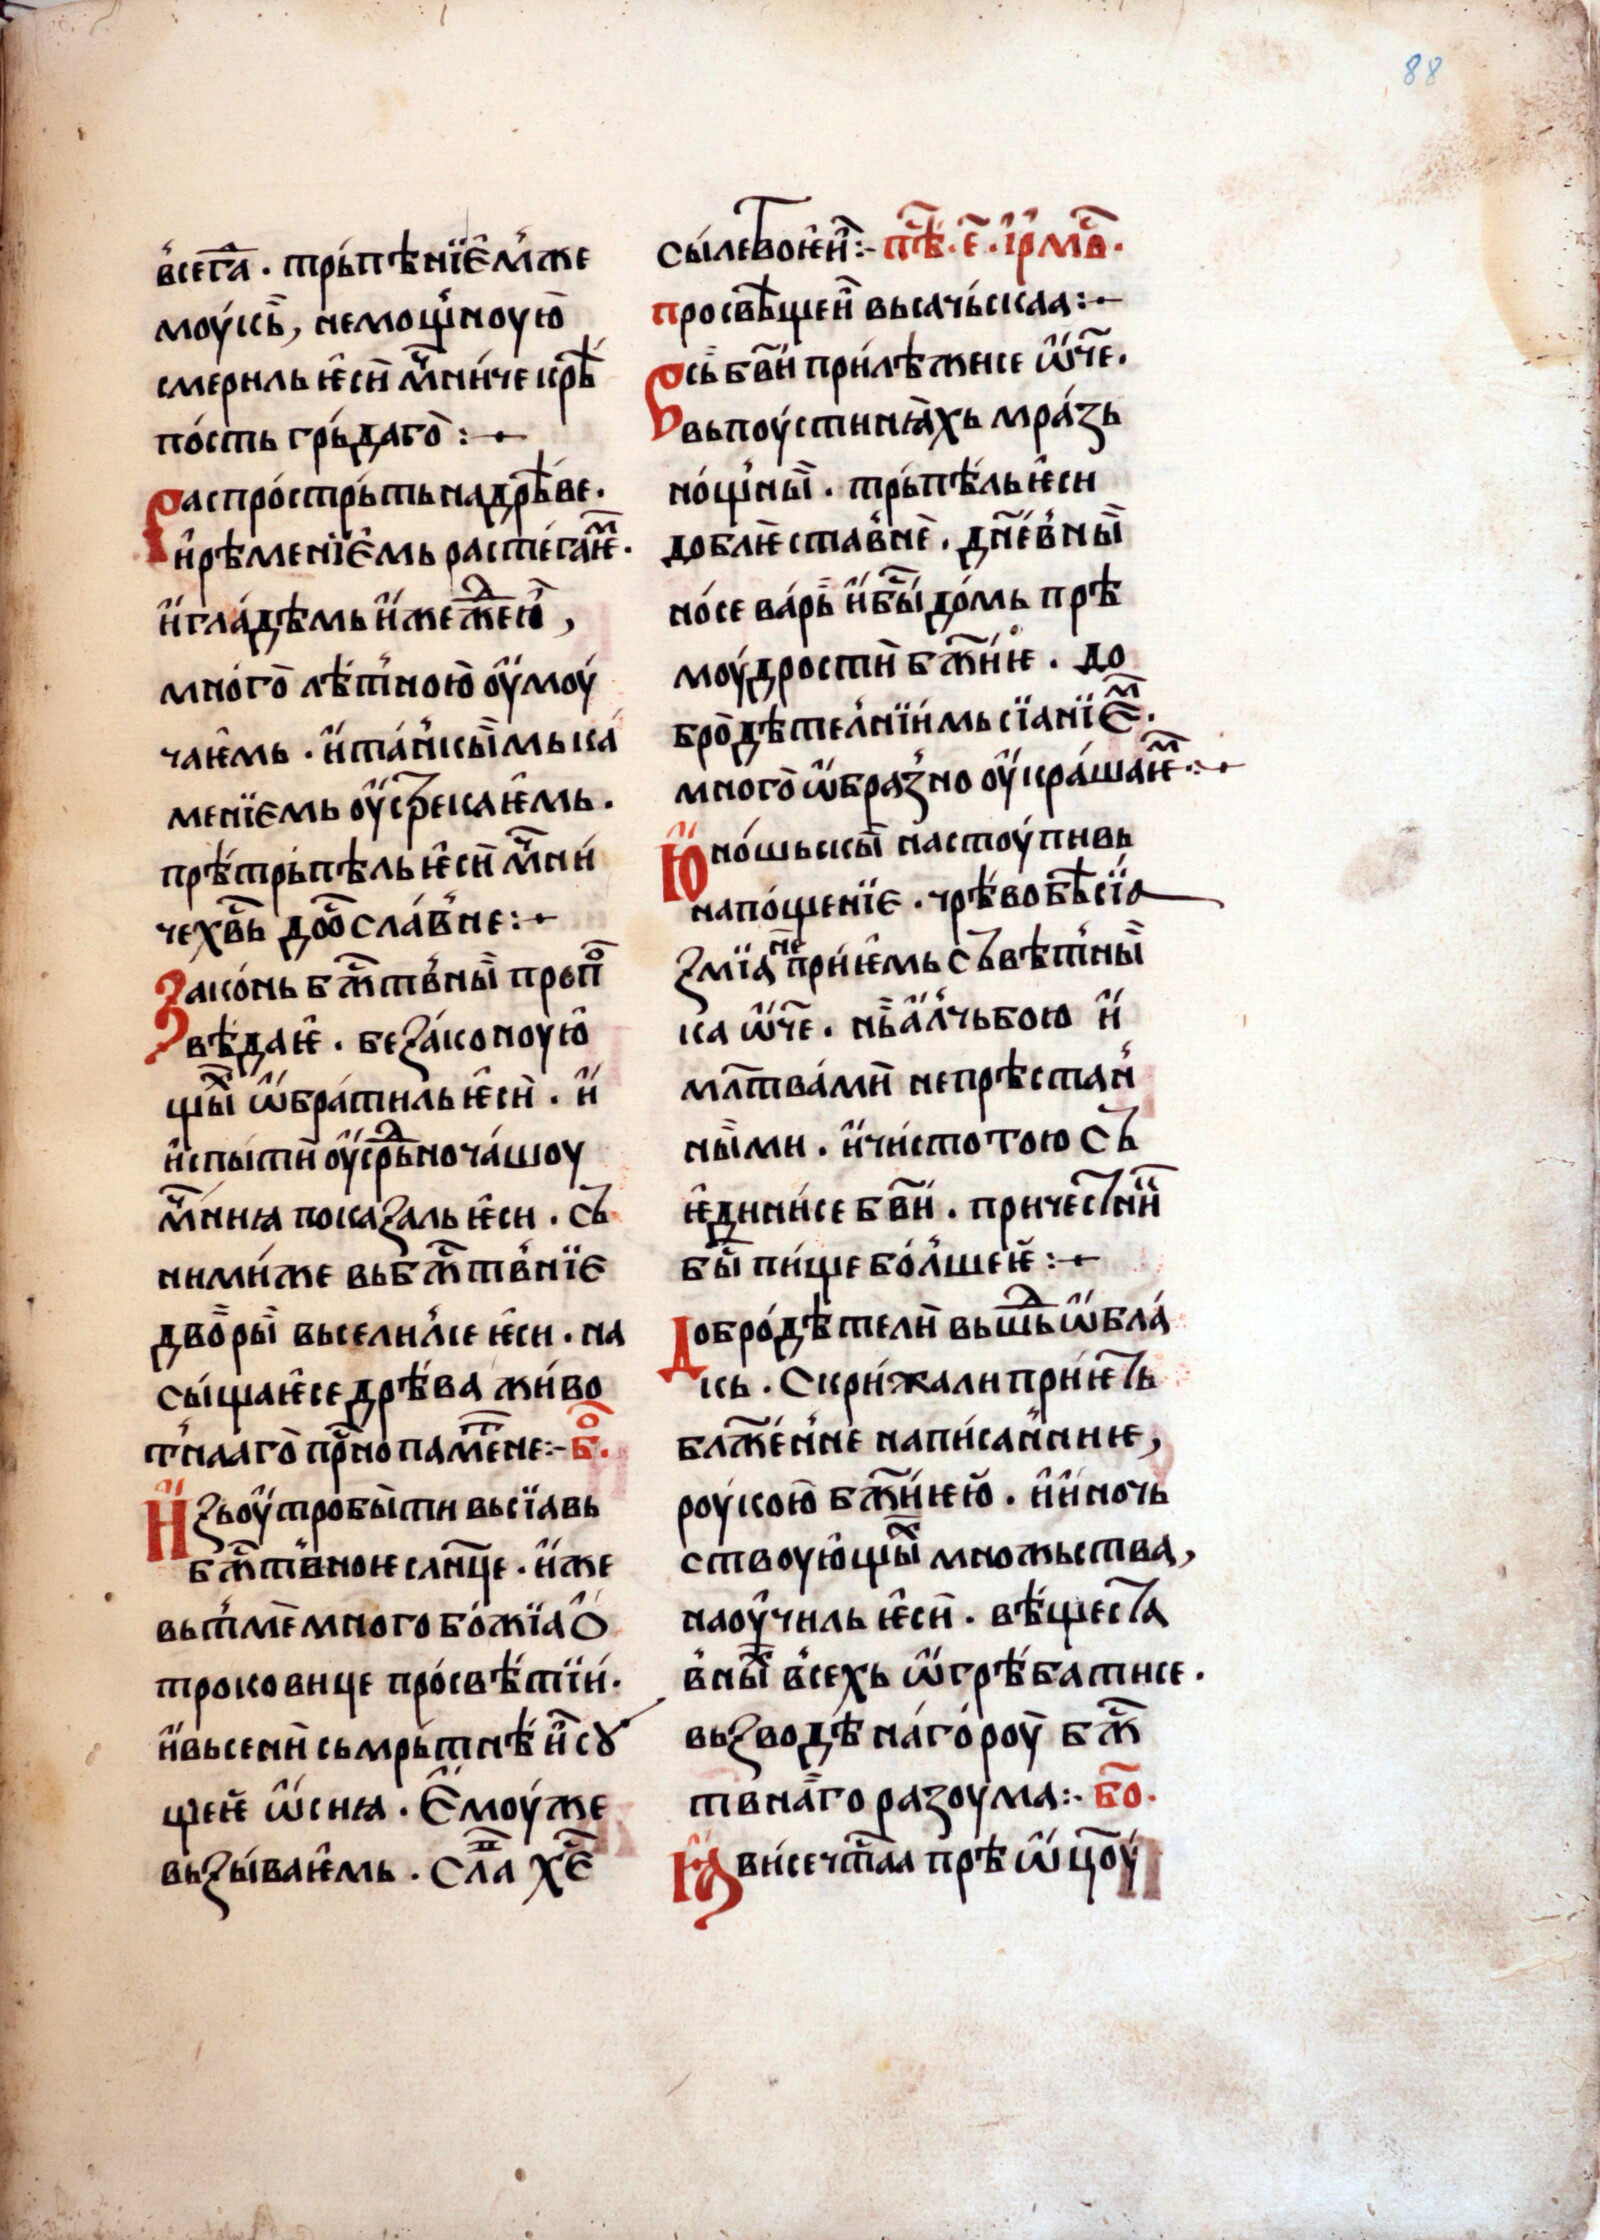 88
в҆сегⷣа · трьпѣнїе́мⸯже
моукь̀, немощⸯноую̀
смериль ѥ҆сѝ мч҃ниче крѣ́
пость грь́даго̀ :⸺
Распро́стрьть на дрѣ́ве ·
и҆ рѣменїе́мь расте́гаѥⷨ ·
и҆ гла́дѣмь и҆ жеⷤжею̀,
мно́го лѣ́тⸯною̀ ѹ҆моу
чаѥ҆мь · и҆ та́и҆кы̀мь ка́
менїемь ѹ҆стрекаѥ҆мь ·
прѣ́трьпѣль ѥ҆сѝ мч҃ни
че хв҃ь доⷭ҇сла́вне :⸺
Зако́нь бжⷭ҇твⸯны̀ пропоⷪ
вѣ́даѥ · беза́коноую҆
щыⷯ ѡ҆бра́тиль ѥ҆сѝ · и҆
и҆спы́тѝ ѹ҆срьⷣно ча́шоу
мч҃нїꙗ показаль ѥ҆си · съ
ними́же вь бжⷭ҇твⸯнїе
дво̀ры̀ вьселилⸯсе ѥ҆си · на
сы́щаѥ҆се дрѣ́ва живо
тⸯнааго̀ прⷭ҇но памеⷮне :- бⷪ҇ ·
И҆зь ѹ҆тробы̀ти вьсїавь
бжⷭ҇твⸯноѥ слн҃це · и҆же
вь тⸯмѐ много бо́жїа ѻ҆
троковице про́свѣ́тїи ·
и҆ вь сенѝ сьмрь́тнѣ и҆ сꙋ
щеѥ ѡ҆сиꙗ · Е҆моуже
вьзы́ваѥ҆мь · слⷡ҇а хе҃
сы́ле твоѥ҆ѝ :- пѣⷭ҇ · е҃ · і҆рмоⷭ҇ ·
просвѣ́щенѝ вьсачьскаа :⸺
Вⸯсь̀ бв҃и прилѣ́жисе ѡ҆ч҃е ·
вь поустинꙗ́хь мра́зь
но́щⸯны̀ · трьпѣ́ль ѥ҆си
доблѥставⸯнѐ · дн҃е́вⸯны̀
но́се ва́рь̀ и҆ бы́ⷭ до́мь прѣ
моудростѝ бж҃иѥ · до
бро̀дѣтелⸯнїимь сїанїеⷨ ·
много̀ѡ҆бразⸯно ѹ҆кра́шаѥⷨ :⸺
Ю҆но́шьскы̀ настоупивь
на по́щенїе · чрѣ́вобѣсїа
змїа не приѥ҆мь съвѣтⸯны̀
ка ѡ҆ч҃е · нь̀ а҆лⸯчьбою и҆
млт҃ва́мѝ непрѣстанⸯ
ны̀ми · и҆ чи́стотою съ
ѥ҆динисе бв҃и · причестнїиⷦ
бы́ⷭ пи́ще бо́лⸯшеѥ :⸺
Добро́дѣтелѝ вьшьⷣ ѡ҆бла́
кь · Скри́жали приѥ҆ть
блаже́нⸯне напи́саннниѥ,
роукою̀ бж҃иѥю̀ · и҆ и҆ночь
ствоую҆щыⷯ множьства,
наоу҆чиль ѥ҆сѝ · вѣ́щества
вⸯныⷯ в҆сехь ѡ҆гре́батисе ·
вьзводѣ на́ горѹ̀ бжⷭ҇
твна̀го разоума :- бо҃ ·
Ꙗ҆ви́се чⷭ҇таа прѣ ѡ҆цоу